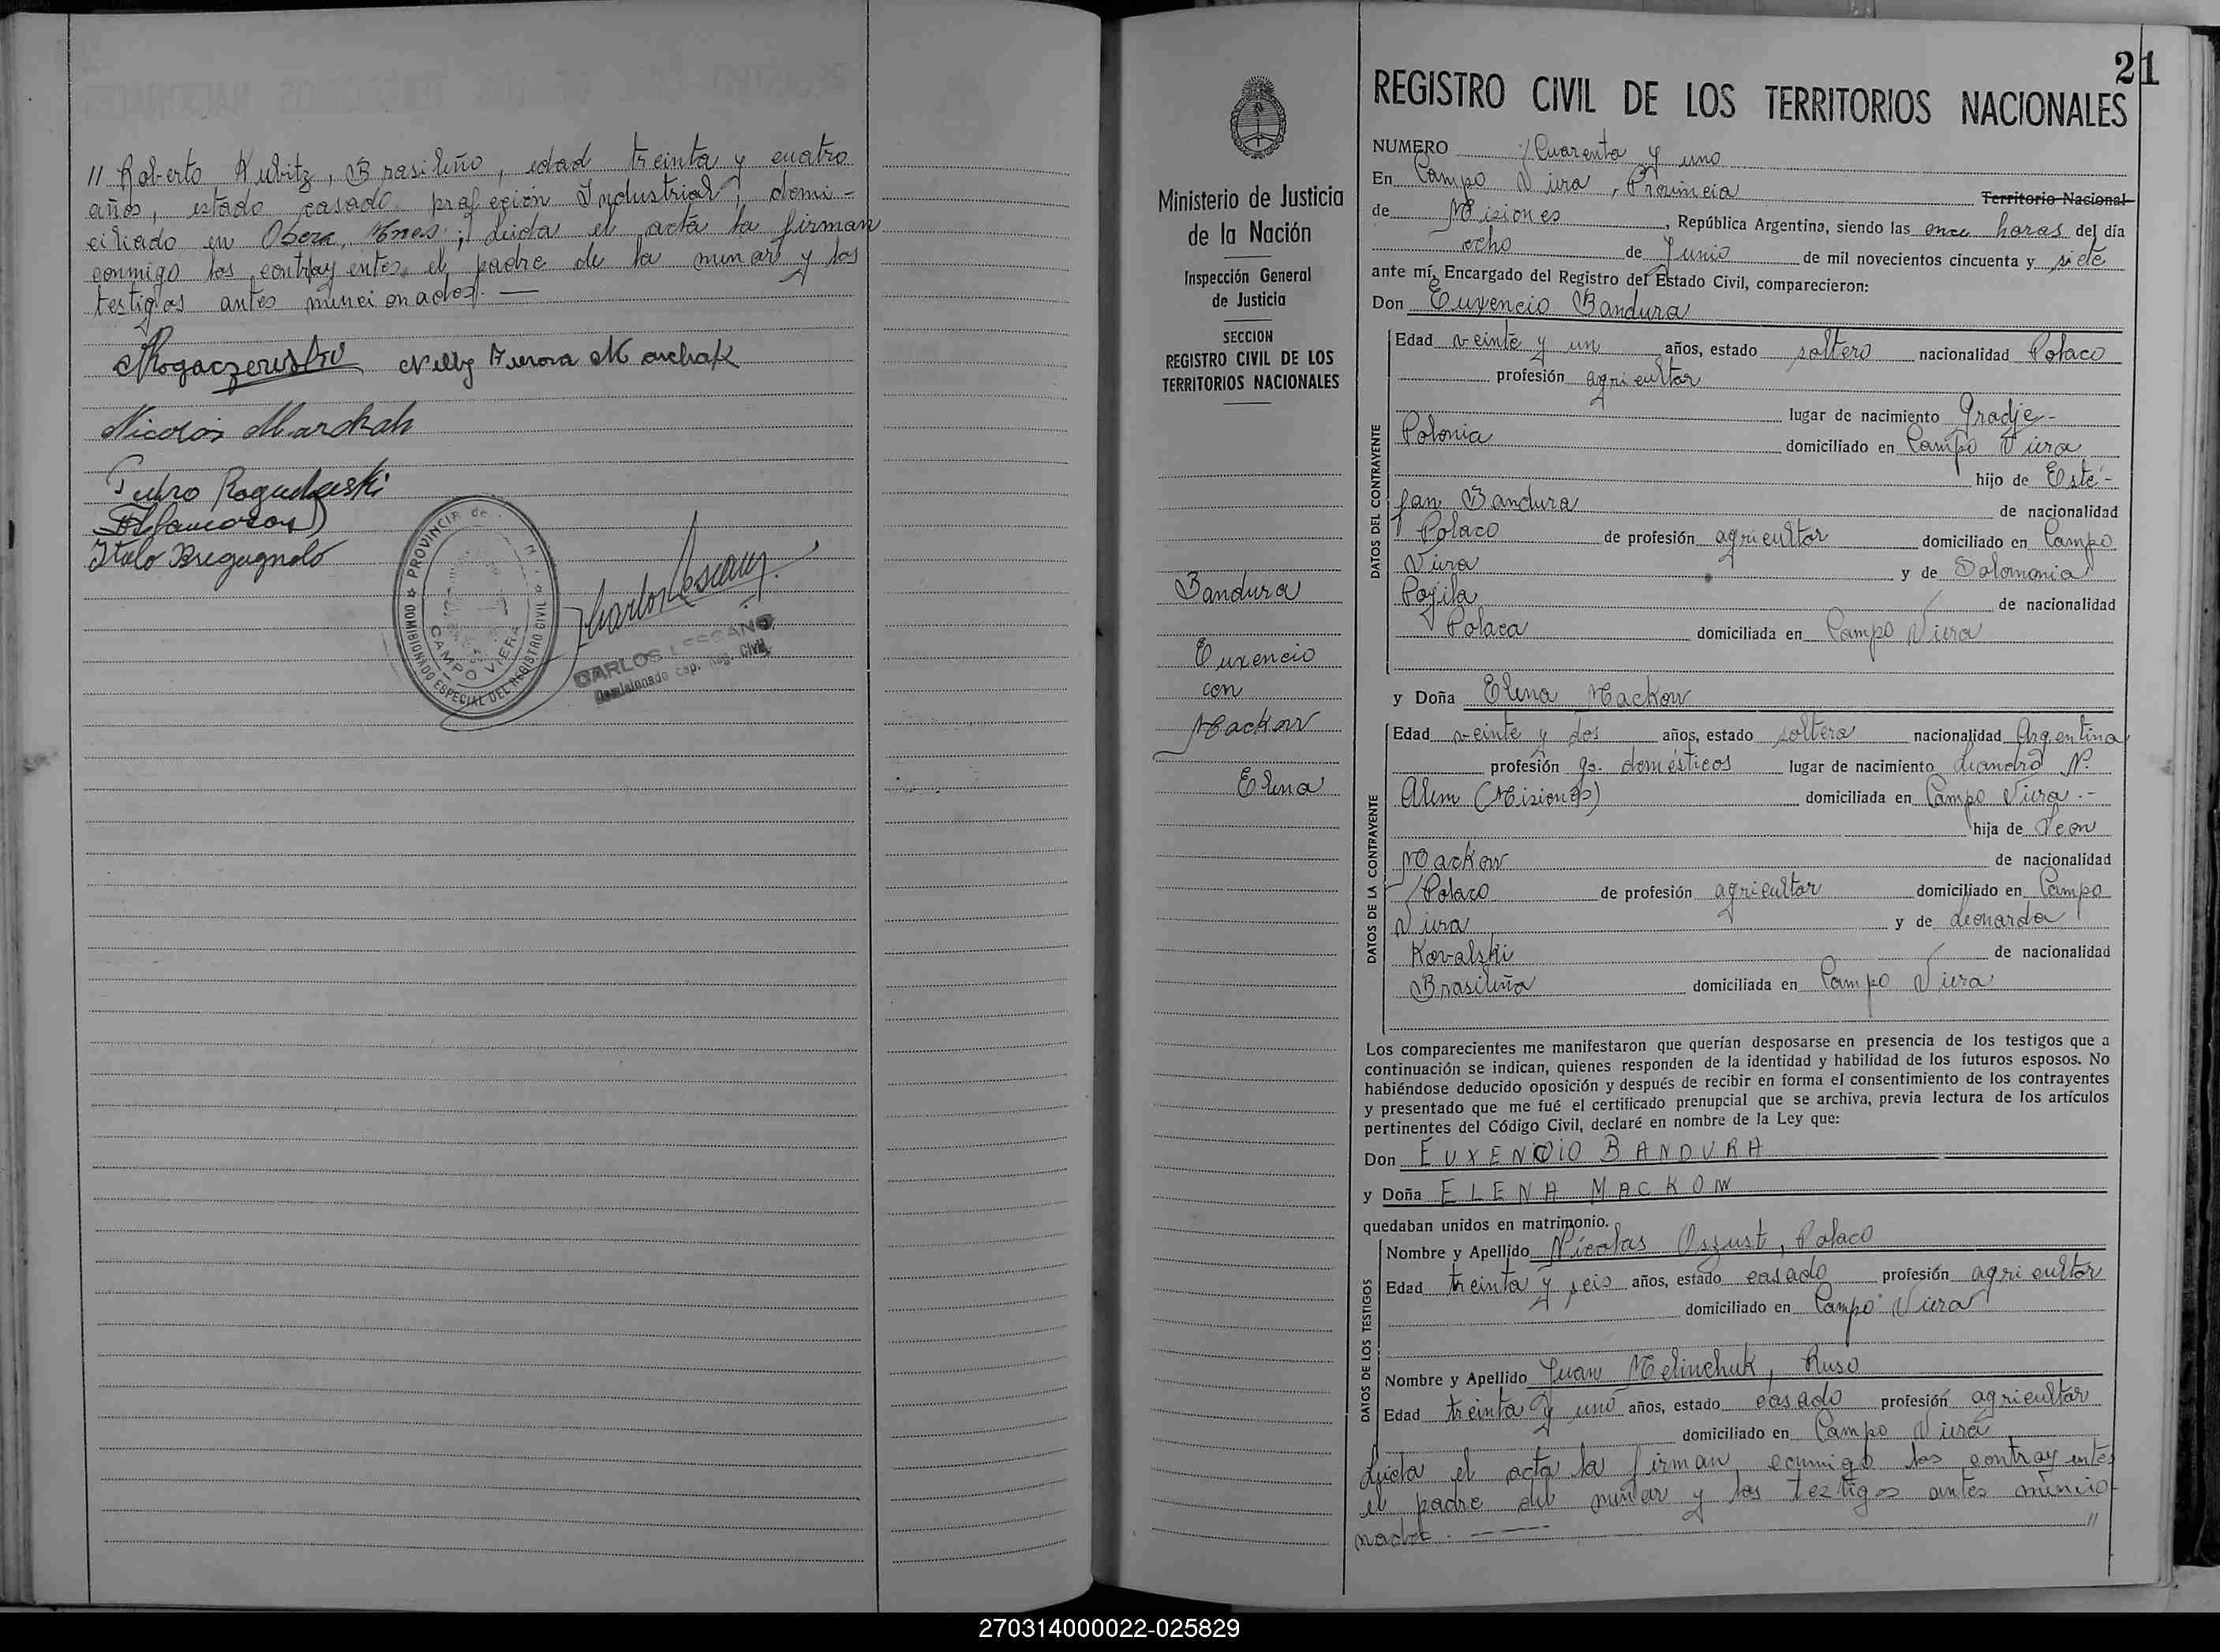 // Roberto Kubitz, Brasileño, edad treinta y cuatro
años, estado casado profeción Industrial, domi-
ciliado en Obera, Mnes; Leida el acta la firman
conmigo los contrayentes, el padre de la menor y los
testigos antes muncionados. —
Nelly Aurora Marchak
Nicolás Marchak
Pedro
Italo Bregagnolo
PROVINCIA de
COMISIONADO ESPECIAL DEL REGISTRO CIVIL
CAMPO VIERA
CARLOS LESCANO
Comisionado Esp. Reg. Civil
21
Ministerio de Justicia
de la Nación
Inspección General
de Justicia
SECCION
REGISTRO CIVIL DE LOS
TERRITORIOS NACIONALES
Bandura
Euxencio
con
Mackow
Elena
REGISTRO CIVIL DE LOS TERRITORIOS NACIONALES
NUMERO Cuarenta y uno
En Campo Viera, Provincia Territorio Nacional
de Misiones, República Argentina, siendo las once horas del día
ocho de Junio de mil novecientos cincuenta y siete
ante mí, Encargado del Registro del Estado Civil, comparecieron:
Don Euxencio Bandura
DATOS DEL CONTRAYENTE
Edad veinte y un años, estado soltero nacionalidad Polaco
profesión agricultor
lugar de nacimiento Gradje-
Polonia domiciliado en Campo Viera
hijo de Esté-
fan Bandura de nacionalidad
Polaco de profesión agricultor domiciliado en Campo
Viera y de Solomonia
Pojila de nacionalidad
Polaca domiciliada en Campo Viera
y Doña Elena Mackow
DATOS DE LA CONTRAYENTE
Edad veinte y dos años, estado soltera nacionalidad Argentina
profesión qs. domésticos lugar de nacimiento Leandro N.
Alem (Misiones) domiciliada en Campo Viera.-
hija de Leon
Mackow de nacionalidad
Polaco de profesión agricultor domiciliado en Campo
Viera y de Leonarda
Kovalski de nacionalidad
Brasileña domiciliada en Campo Viera
Los comparecientes me manifestaron que querían desposarse en presencia de los testigos que a
continuación se indican, quienes responden de la identidad y habilidad de los futuros esposos. No
habiéndose deducido oposición y después de recibir en forma el consentimiento de los contrayentes
y presentado que me fué el certificado prenupcial que se archiva, previa lectura de los artículos
pertinentes del Código Civil, declaré en nombre de la Ley que:
Don EUXENCIO BANDURA
y Doña ELENA MACKOW
quedaban unidos en matrimonio.
DATOS DE LOS TESTIGOS
Nombre y Apellido Nicolas Oszust, Polaco
Edad treinta y seis años, estado casado profesión agricultor
domiciliado en Campo Viera
Nombre y Apellido Juan Melinchuk, Ruso
Edad treinta y uno años, estado casado profesión agricultor
domiciliado en Campo Viera
Leida el acta la firman conmigo los contrayentes
el padre del menor y los testigos antes muncio-
nados. — //
270314000022-025829